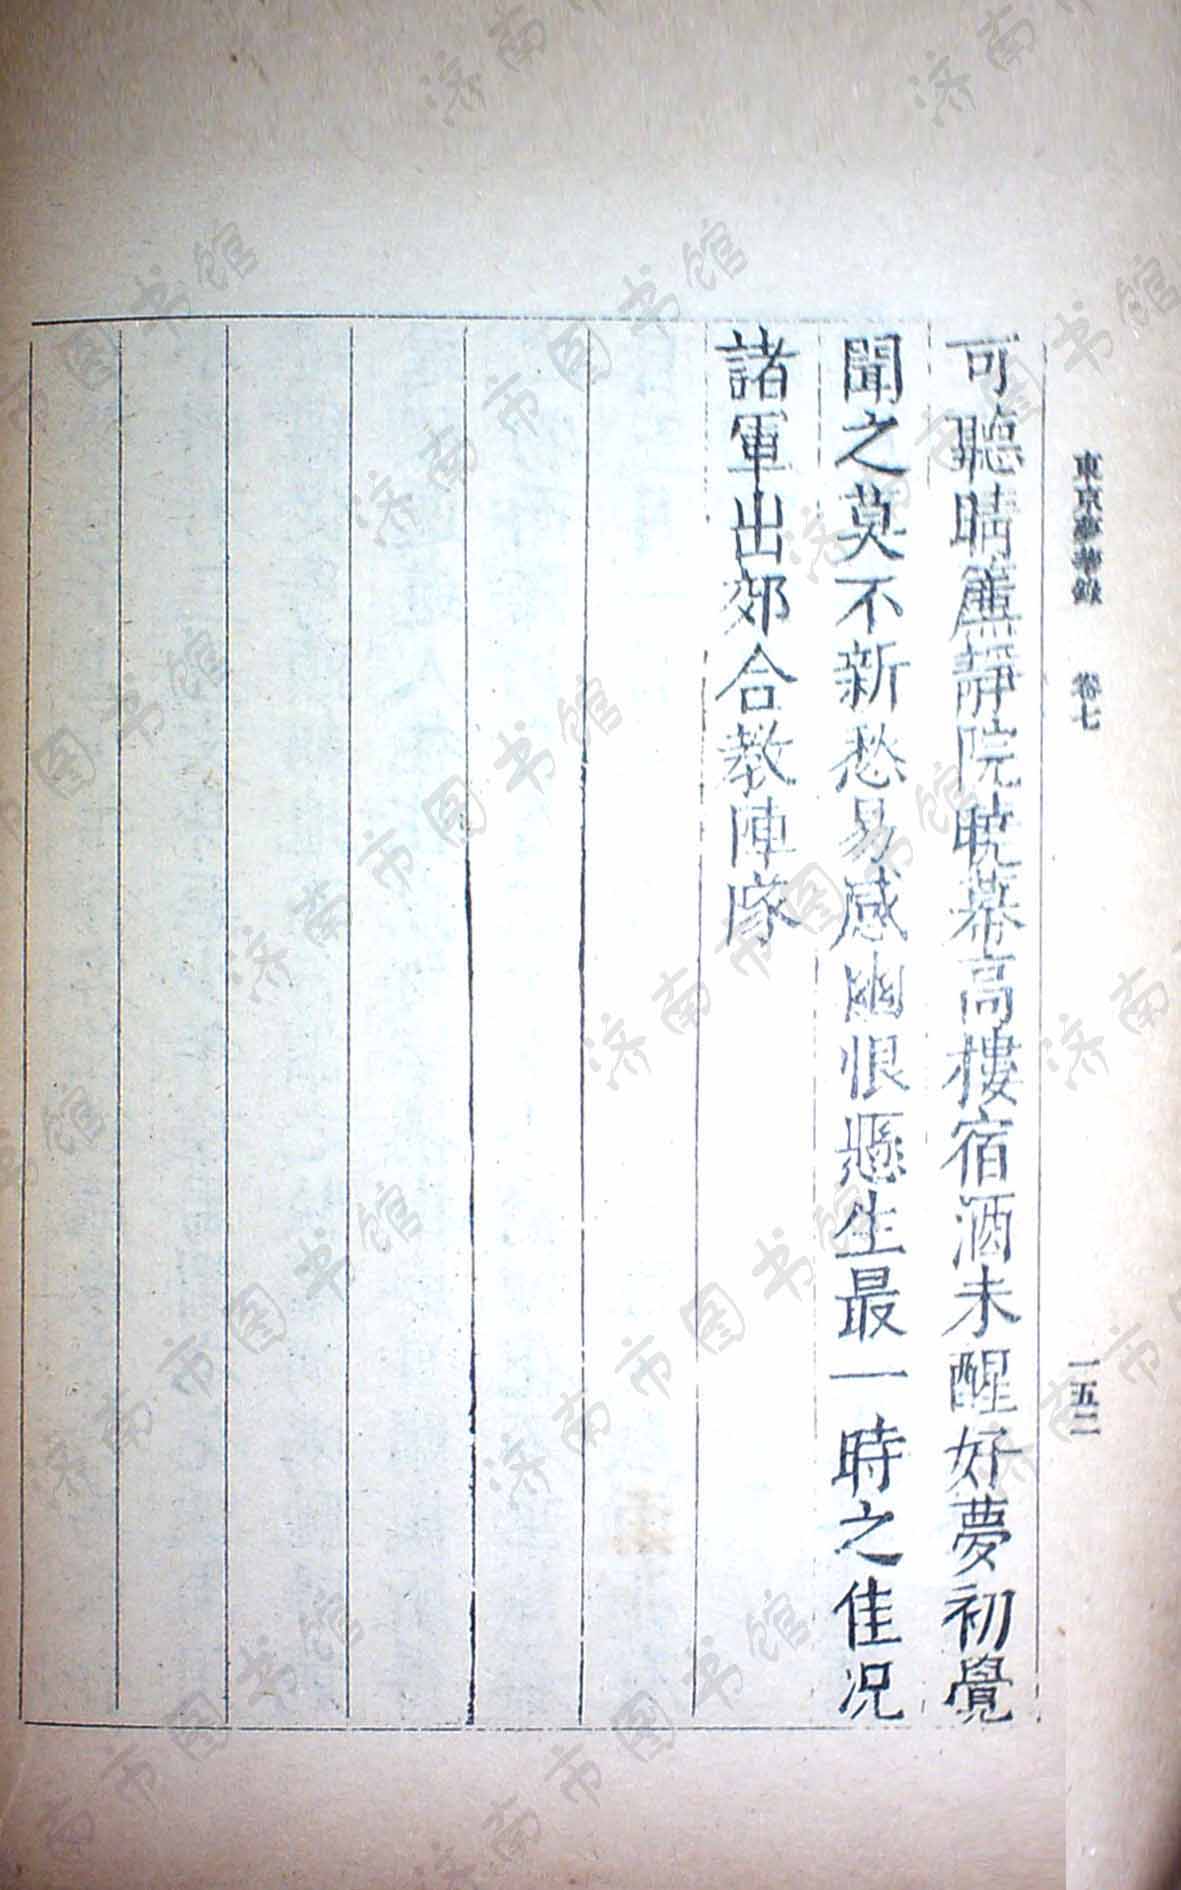 東京夢華錄 卷七 一五二
可聽晴簾靜院曉幕高樓宿酒未醒好夢初覺
聞之莫不新愁易感幽恨懸生最一時之佳况
諸軍出郊合教陣隊
济南市图书馆